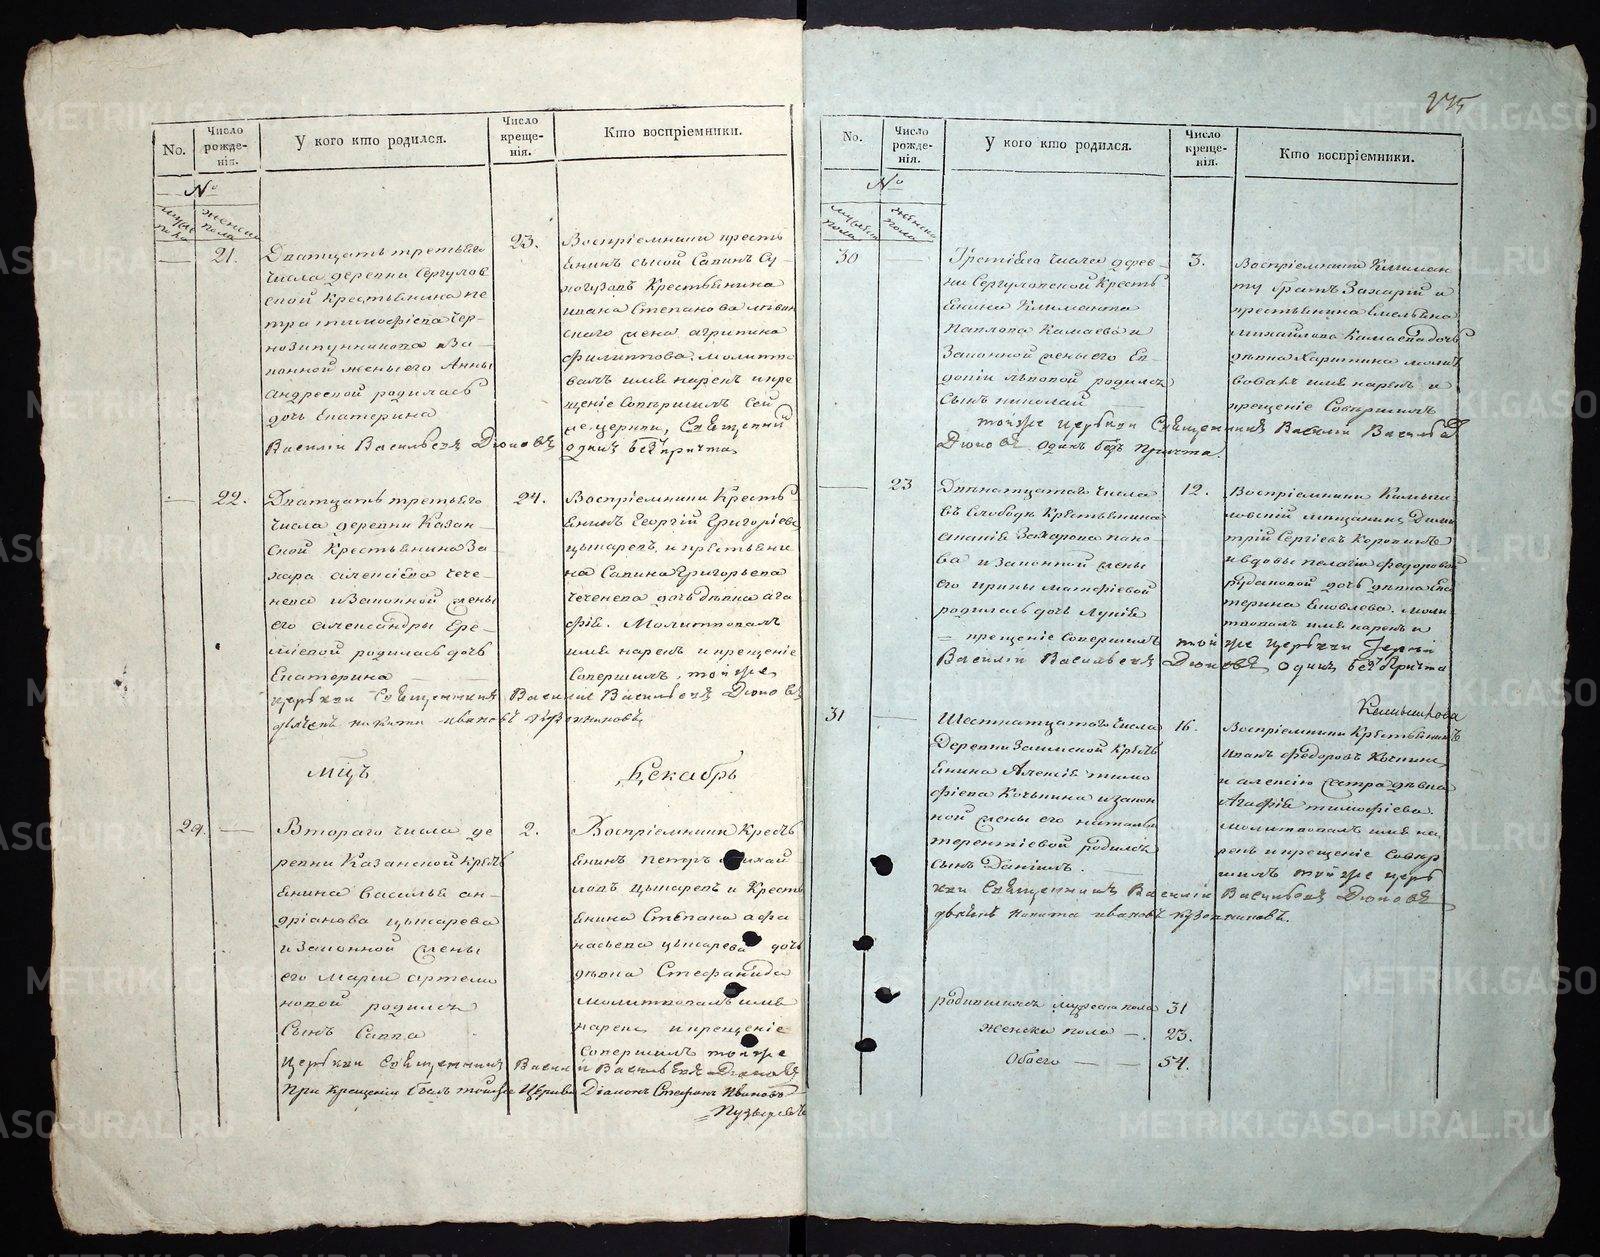 No.
Число рожденія.
У кого кто родился.
Число крещенія.
Кто воспріемники.
№
мужеска пола
женска пола
21.
Дватцать третьяго
числа деревни Сергулов
ской крестьянина Пе
тра Тимофіева Чер-
нозипунникова и за-
конной жены его Анны
Андреевой родилась
дочь Екатерина
23.
Воспріемники кресть
янинъ
крестьянина
Ивана Степанова
жена Агрипина
Филиппова. Молитво
валъ имя нарекъ и кре
щеніе совершилъ сей
же церкви, Священникъ
Василій Васильевъ Дюковъ одинъ безъ причта
22.
Дватцать третьяго
числа деревни Казан-
ской крестьянина За
хара Алексіева Чече-
нева и законной жены
его Александры Ере-
міевой родилась дочь
Екатерина
24.
Воспріемники кресть
янинъ Георгій Григоріевъ
Цыпаревъ, и крестьяни
на Савина Григорьева
Чеченева дочь дѣвка Ага
фія. Молитвовалъ
имя нарекъ и крещеніе
совершилъ, той же
церкви Священникъ Василій Васильевъ Дюковъ
дьячекъ Никита Ивановъ Кузовниковъ
Мцъ
Декабрь
29.
Втораго числа де
ревни Казанской кресть
янина Василья Ан-
дріанова Цыпарева
и законной жены
его Маріи Артемо
новой родился
сынъ Савва
2.
Воспріемники кресть
янинъ Петръ Михай
ловъ Цыпаревъ и кресть
янина Степана Афа
насьева Цыпарева дочь
дѣвка Стефанида
молитвовалъ имя
нарекъ, и крещеніе
совершилъ той же
церкви Священникъ Василій Васильевъ Дюковъ
При крещеніи былъ той же Церкви Діаконъ Стефанъ Ивановъ
Пузыревъ
No.
Число рожденія.
У кого кто родился.
Число крещенія.
Кто воспріемники.
№
мужеска пола
женска пола
30
Третіяго числа дерев-
ни Сергуловской кресть
янина Климента
Павлова Камаева и
законной жены его Ев-
докіи Львовой родился
сынъ Николай
3.
Воспріемники Климен
ту братъ Захарій и
крестьянина Емельяна
Михайлова Камаева дочь
дѣвка Харитина молит
вовалъ имя нарекъ и
крещеніе совершилъ
той же церкви Священникъ Василій Васильевъ
Дюковъ одинъ безъ причта.
23
Двѣнатцатаго числа
въ Слободѣ крестьянина
Ананія Захарова
и законной жены
его Ирины Матфіевой
родилась дочь Лукія
12.
Воспріемники Камыш
ловскій мѣщанинъ Дими
трій Сергіевъ Коровинъ
и вдовы Пелагіи Федоровой
дочь дѣвка Ека
терина Яковлева. Моли
твовалъ имя нарекъ и
крещеніе совершилъ той же церкви Іерей
Василій Васильевъ Дюковъ одинъ безъ Причта
31
Шестнатцатаго числа
деревни Заимской кресть
янина Алексія Тимо
фіева Кочьнина и закон
ной жены его Натальи
Терентіевой родился
сынъ Даніилъ.
16.
Воспріемники крестьянинъ
Иванъ Федоровъ Кочнинъ
и Алексію сестра дѣвка
Агафія Тимофіева.
молитвовалъ имя на
рекъ и крещеніе совер
шилъ той же церк
ви Священникъ Василій Васильевъ Дюковъ
дьячекъ Никита Ивановъ Кузовниковъ.
родившихся мужеска пола 31
женска пола — 23.
Обоего — 54.